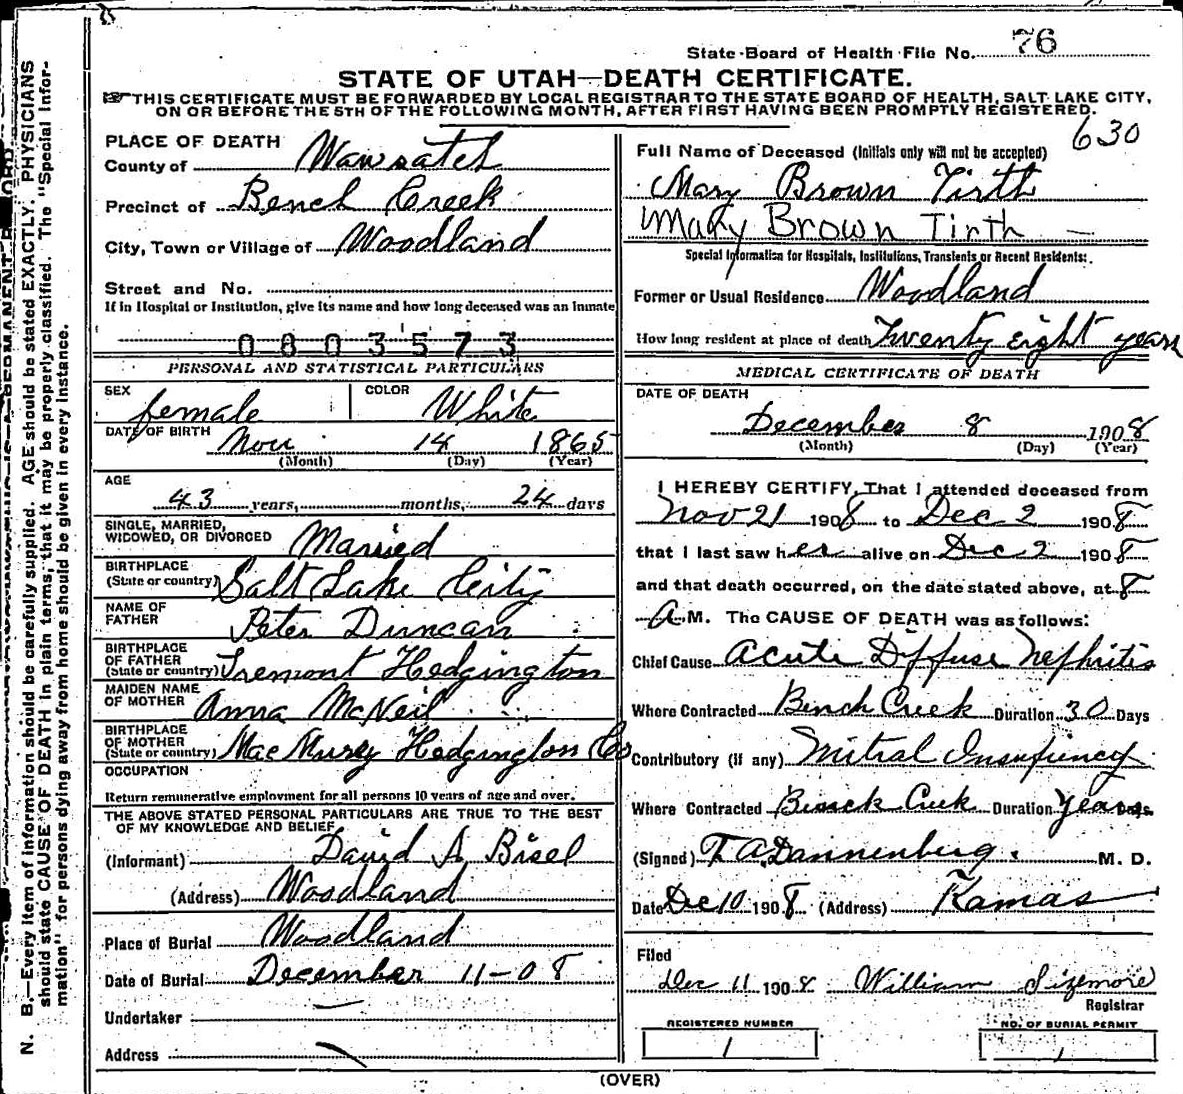 State Board of Health File No. 76
STATE OF UTAH—DEATH CERTIFICATE.
THIS CERTIFICATE MUST BE FORWARDED BY LOCAL REGISTRAR TO THE STATE BOARD OF HEALTH, SALT LAKE CITY,
ON OR BEFORE THE 5TH OF THE FOLLOWING MONTH, AFTER FIRST HAVING BEEN PROMPTLY REGISTERED.
630
PLACE OF DEATH
County of Wawsatch
Precinct of Bench Creek
City, Town or Village of Woodland
Street and No.
If in Hospital or Institution, give its name and how long deceased was an inmate
0803573
PERSONAL AND STATISTICAL PARTICULARS
SEX female COLOR White
DATE OF BIRTH Nov 14 1865
(Month) (Day) (Year)
AGE
43 years, months, 24 days
SINGLE, MARRIED,
WIDOWED, OR DIVORCED Married
BIRTHPLACE
(State or country) Salt Lake City
NAME OF
FATHER Peter Duncan
BIRTHPLACE
OF FATHER
(State or country) Tremont Hedgington
MAIDEN NAME
OF MOTHER Anna McNeil
BIRTHPLACE
OF MOTHER
(State or country) Mac Murey Hedgington Co
OCCUPATION
Return remunerative employment for all persons 10 years of age and over.
THE ABOVE STATED PERSONAL PARTICULARS ARE TRUE TO THE BEST
OF MY KNOWLEDGE AND BELIEF
(Informant) David A Bisel
(Address) Woodland
Place of Burial Woodland
Date of Burial December 11-08
Undertaker
Address
Full Name of Deceased (Initials only will not be accepted)
Mary Brown Tirth
Mary Brown Tirth
Special Information for Hospitals, Institutions, Transients or Recent Residents:
Former or Usual Residence Woodland
How long resident at place of death Twenty eight years
MEDICAL CERTIFICATE OF DEATH
DATE OF DEATH
December 8 1908
(Month) (Day) (Year)
I HEREBY CERTIFY, That I attended deceased from
Nov 21 1908 to Dec 2 1908
that I last saw her alive on Dec 2 1908
and that death occurred, on the date stated above, at 8
A M. The CAUSE OF DEATH was as follows:
Chief Cause Acute Diffuse Nephritis
Where Contracted Bench Creek Duration 30 Days
Contributory (if any) Mitral Insufiency
Where Contracted Bench Creek Duration years Days
(Signed) T. A. Dannenberg M. D.
Date Dec 10 1908 (Address) Kamas
Filed
Dec 11 1908 William Sizemore
Registrar
REGISTERED NUMBER
1
NO. OF BURIAL PERMIT
1
(OVER)
N. B.—Every item of information should be carefully supplied. AGE should be stated EXACTLY. PHYSICIANS
should state CAUSE OF DEATH in plain terms, that it may be properly classified. The "Special Infor-
mation" for persons dying away from home should be given in every instance.